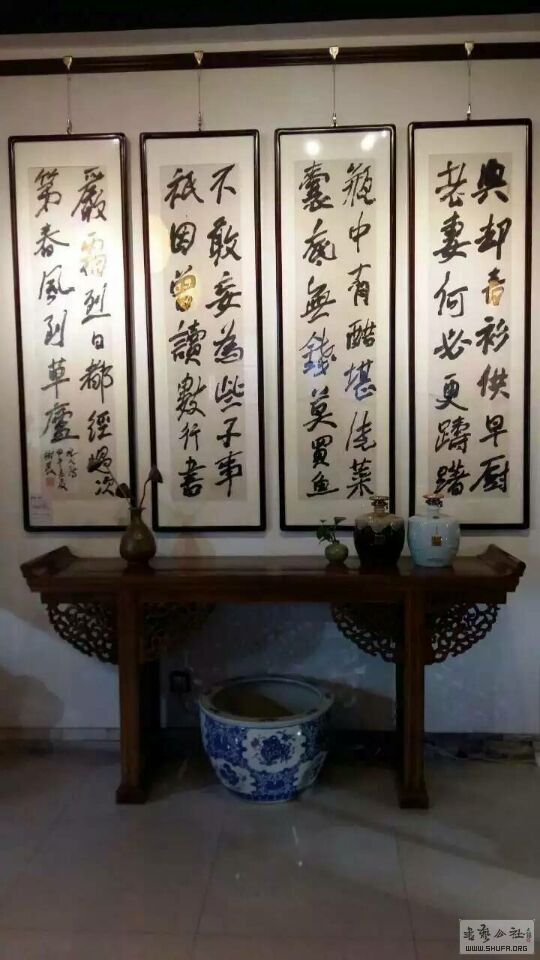 典却青衫供早厨
老妻何必更踌躇
瓶中有醋堪浇菜
囊底無錢莫買魚
不敢妄為些子事
祇因曾讀數行書
嚴霜烈日都經過次
第春風到草廬
WWW.SHUFA.ORG